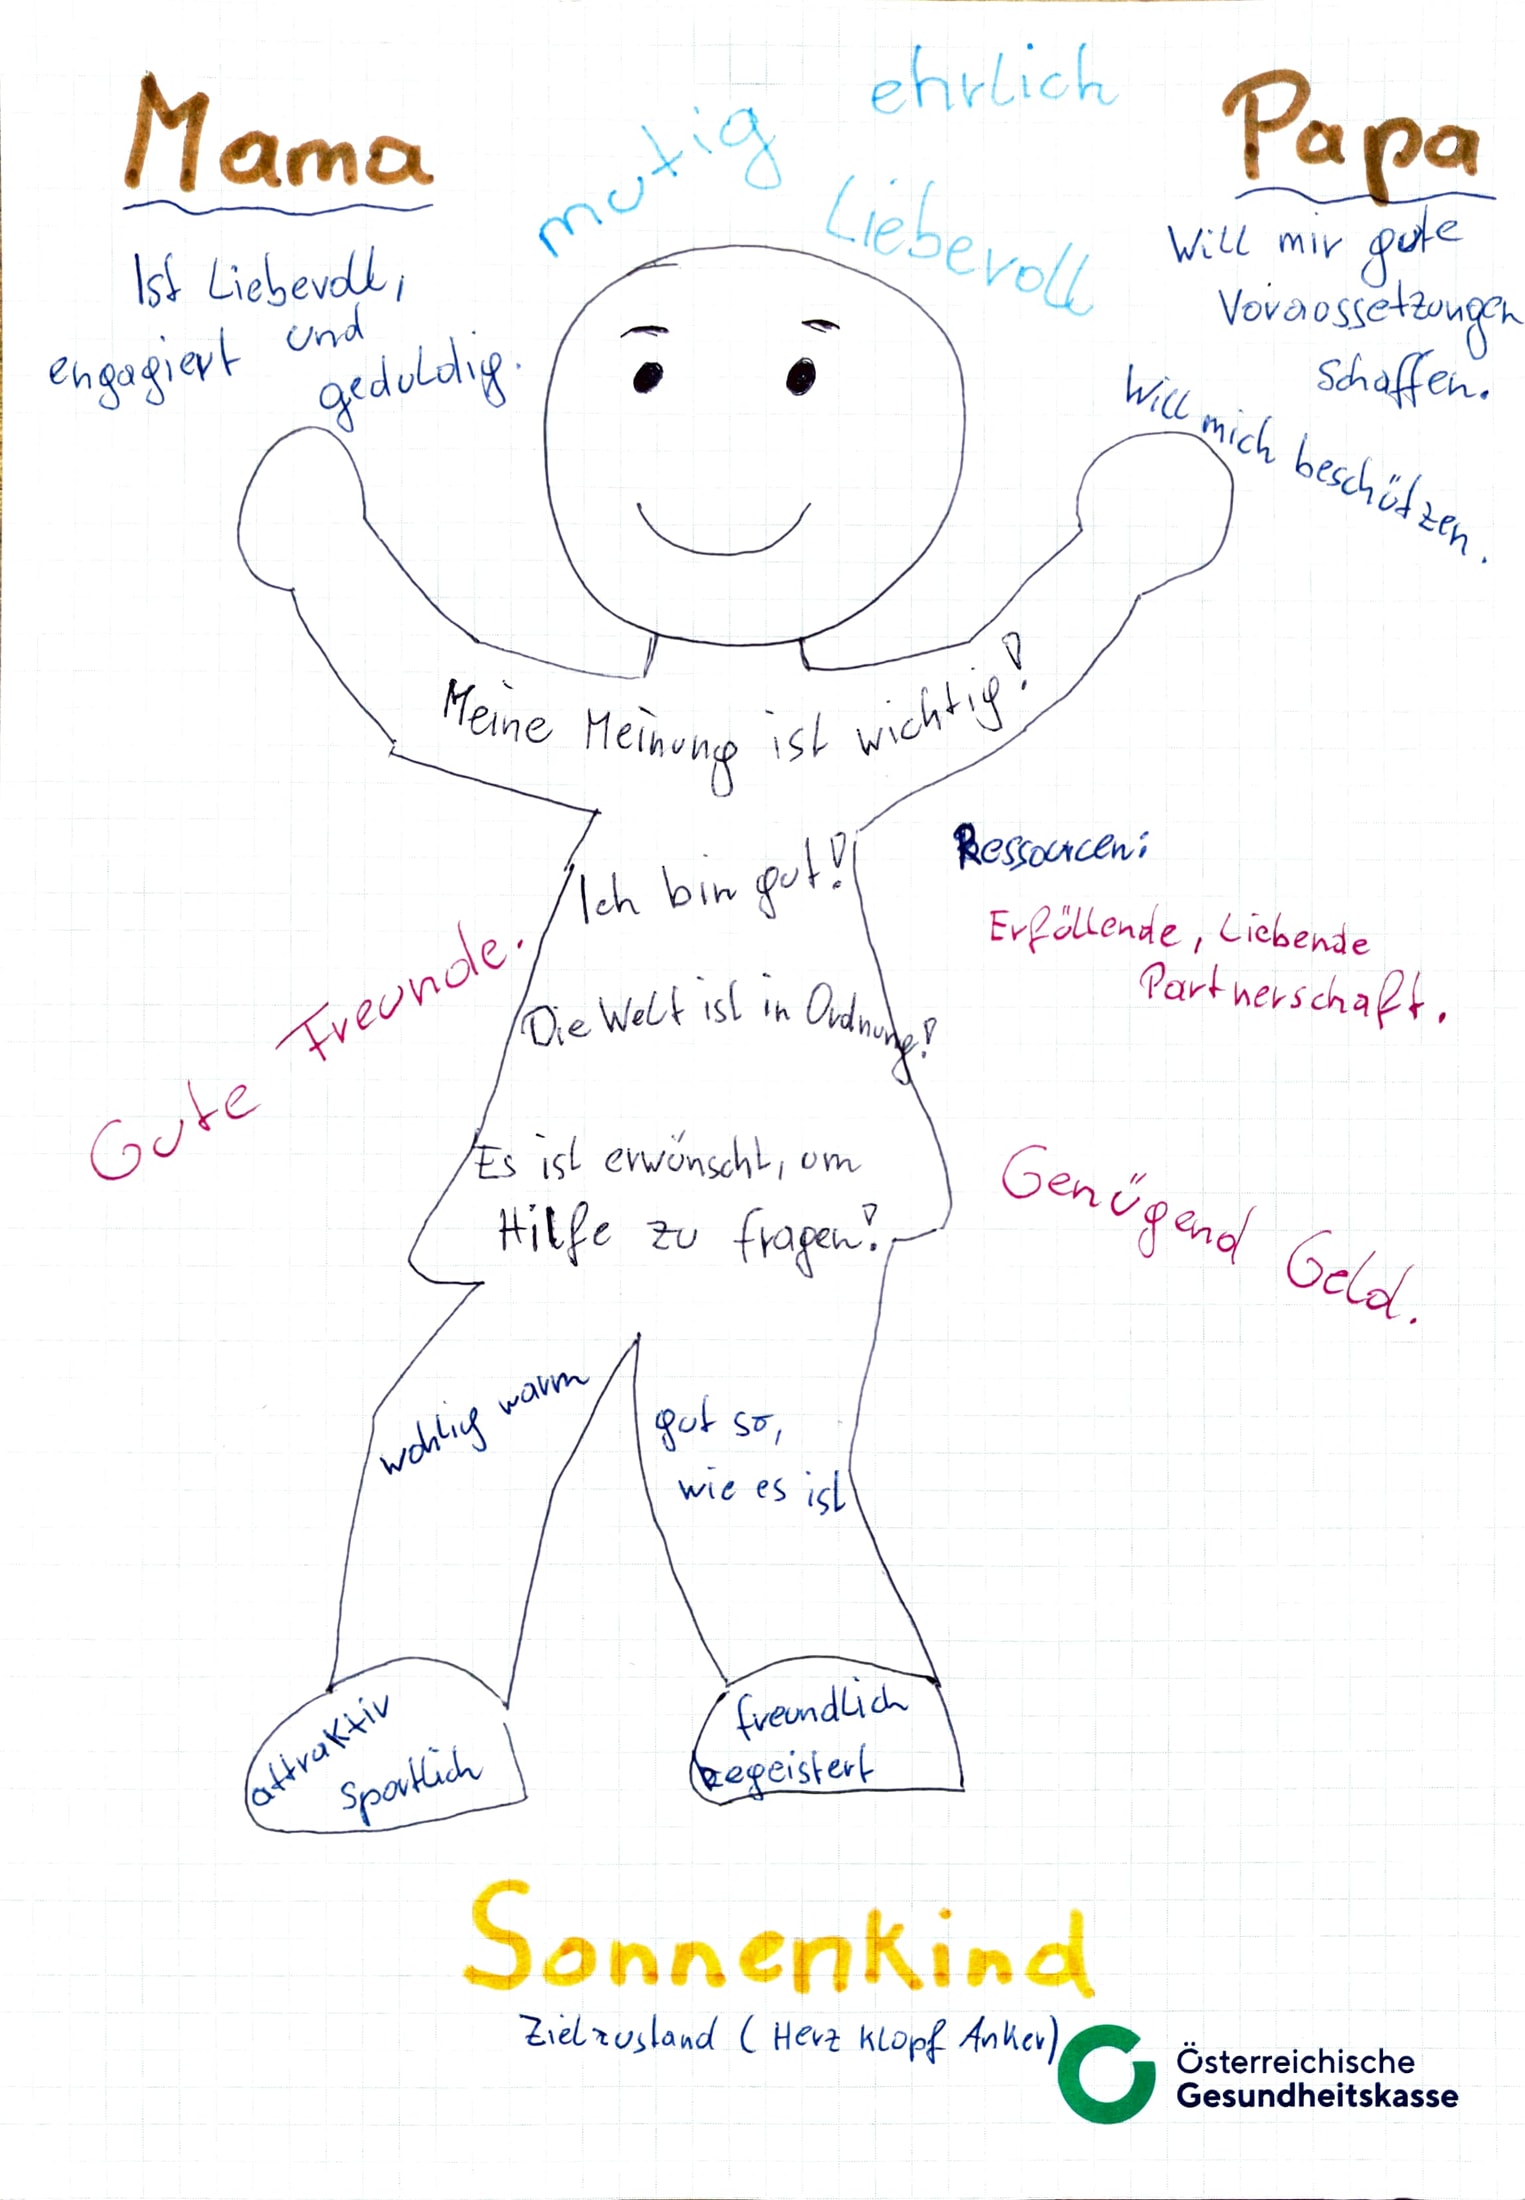 Mama
Ist Liebevoll,
engagiert und
geduldig.
mutig
ehrlich
Liebevoll
Papa
Will mir gute
Voraussetzungen
schaffen.
Will mich beschützen.
Meine Meinung ist wichtig!
Ich bin gut!
Die Welt ist in Ordnung!
Es ist erwünscht, um
Hilfe zu fragen!
Gute Freunde.
Ressourcen:
Erfüllende, Liebende
Partnerschaft.
Genügend Geld.
wohlig warm
gut so,
wie es ist
attraktiv
sportlich
freundlich
begeistert
Sonnenkind
Zielzustand (Herz klopf Anker)
Österreichische
Gesundheitskasse